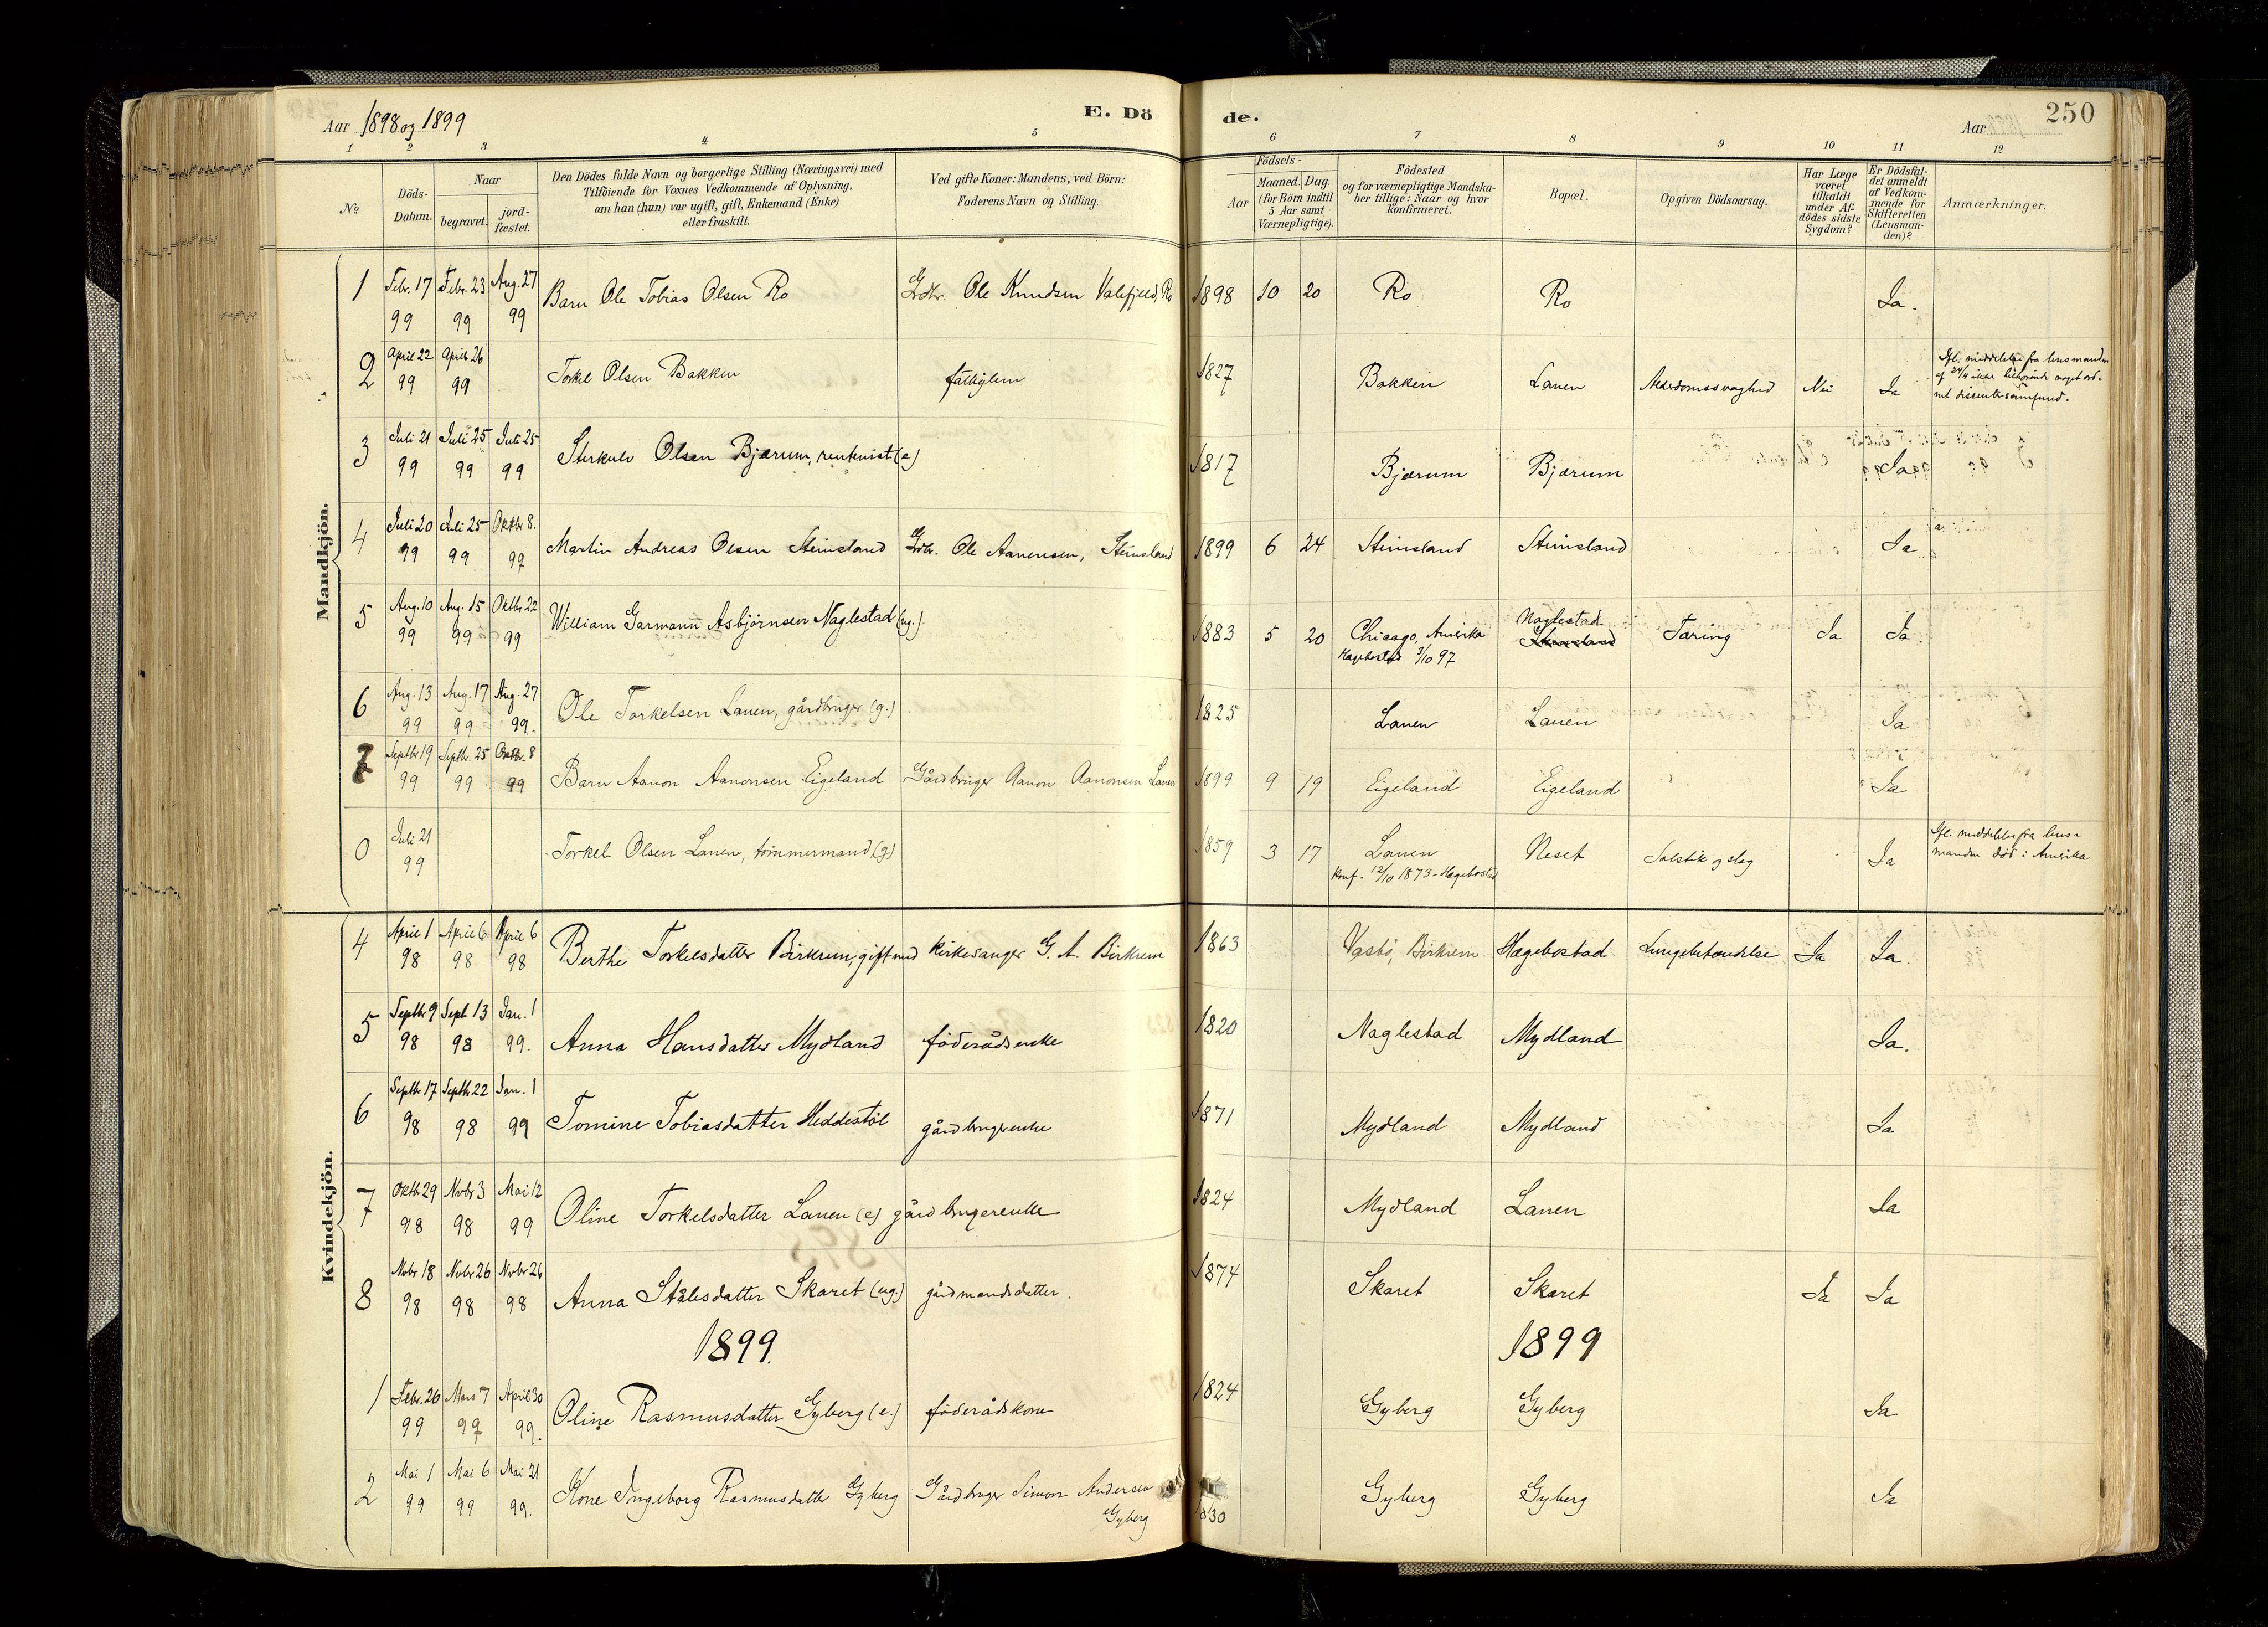 Aar 1898 og 1899
E. Dö de.
Aar
250
1 2 3 4 5 6 7 8 9 10 11 12
№
Döds-Datum.
Naar
begravet.
jord-fæstet.
Den Dödes fulde Navn og borgerlige Stilling (Næringsvei) med
Tilföiende for Voxnes Vedkommende af Oplysning,
om han (hun) var ugift, gift, Enkemand (Enke)
eller fraskilt.
Ved gifte Koner: Mandens, ved Börn:
Faderens Navn og Stilling.
Födsels-
Aar
Maaned. Dag.
(for Börn indtil
5 Aar samt
Værnepligtige).
Födested
og for værnepligtige Mandska-
ber tillige: Naar og hvor
konfirmeret.
Bopæl.
Opgiven Dödsaarsag.
Har Læge
været
tilkaldt
under Af-
dödes sidste
Sygdom?
Er Dödsfal-
det anmeldt
af Vedkom-
mende for
Skifteretten
(Lensman-
den)?
Anmærkninger.
Mandkjön.
1 Febr. 17 99 Febr. 23 99 Aug. 27 99 Barn Ole Tobias Olsen Ro Grdbr. Ole Knudsen Valefjeld, Ro 1898 10 20 Ro Ro Ja.
2 April 22 99 April 26 99 Torkel Olsen Bakken fattiglem 1827 Bakken Lauen Alderdomssvaghed Nei Ja Ifl. meddelelse fra lensmanden
af 24/4 ikke tilhørende noget ord-
net dissentersamfund.
3 Juli 21 99 Juli 25 99 Juli 25 99 Sterkulv Olsen Bjærum, rentenist (e) 1817 Bjærum Bjærum Ja
4 Juli 20 99 Juli 25 99 Oktbr 8. 99 Martin Andreas Olsen Steinsland Grdbr. Ole Aanensen, Steinsland 1899 6 24 Steinsland Steinsland Ja
5 Aug. 10 99 Aug. 15 99 Oktbr 22 99 William Garmann Asbjørnsen Naglestad (ug.) 1883 5 20 Chicago, Amerika
Hægebostad 3/10 97 Naglestad Tæring Ja Ja.
6 Aug. 13 99 Aug. 17 99 Aug. 27 99. Ole Torkelsen Lauen, gårdbruger (g.) 1825 Lauen Lauen Ja
7 Septbr 19 99 Septbr. 25 99 Oktbr. 8 99 Barn Aanon Aanonsen Eigeland Gårdbruger Aanon Aanonsen Lauen 1899 9 19 Eigeland Eigeland Ja
0 Juli 21 99 Torkel Olsen Lauen, tømmermand (g) 1859 3 17 Lauen
konf. 12/10 1873 - Hægebostad Neset Solstik og slag Ja Ifl. meddelelse fra lens-
manden død i Amerika
Kvindekjön.
4 April 1 98 April 6 98 April 6 98 Berthe Torkelsdatter Birkrem, gift med kirkesanger G. A. Birkrem 1863 Vasbø, Birkrem Hægebostad Lungebetændelse Ja Ja.
5 Septbr 9 98 Sept 13 98 Jan. 1 99. Anna Hansdatter Mydland føderådsenke 1820 Naglestad Mydland Ja.
6 Septbr 17 98 Septbr 22 98 Jan. 1 99 Tomine Tobiasdatter Heddestøl gårdbrugerenke 1871 Mydland Mydland Ja
7 Oktb 29 98 Novbr 3 98 Mai 12 99 Oline Torkelsdatter Lauen (e) gårdbrugerenke 1824 Mydland Lauen Ja
8 Novbr 18 98 Novbr 26 98 Novbr 26 98 Anna Stålesdatter Skaret (ug.) gårdmandsdatter. 1874 Skaret Skaret Ja Ja
1899. 1899
1 Febr. 26 99 Mars 7 99 April 30 99. Oline Rasmusdatter Gyberg (e.) føderådskone 1824 Gyberg Gyberg Ja
2 Mai 1 99 Mai 6 99 Mai 21 99. Kone Ingeborg Rasmusdatter Gyberg Gårdbruger Simon Andersen
Gyberg 1830 Gyberg Gyberg Ja